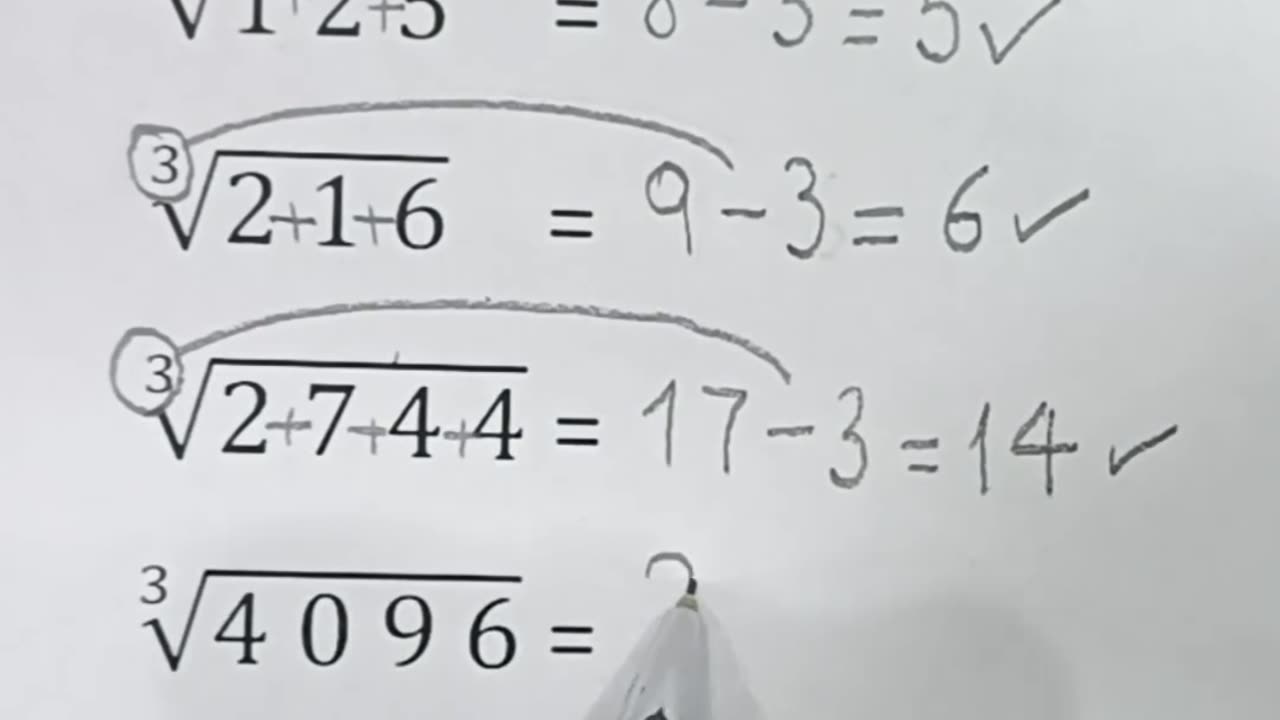 √1+2+5 = 8-3=5✓
³√2+1+6 = 9-3=6✓
³√2+7+4+4 = 17-3=14✓
³√4096 =